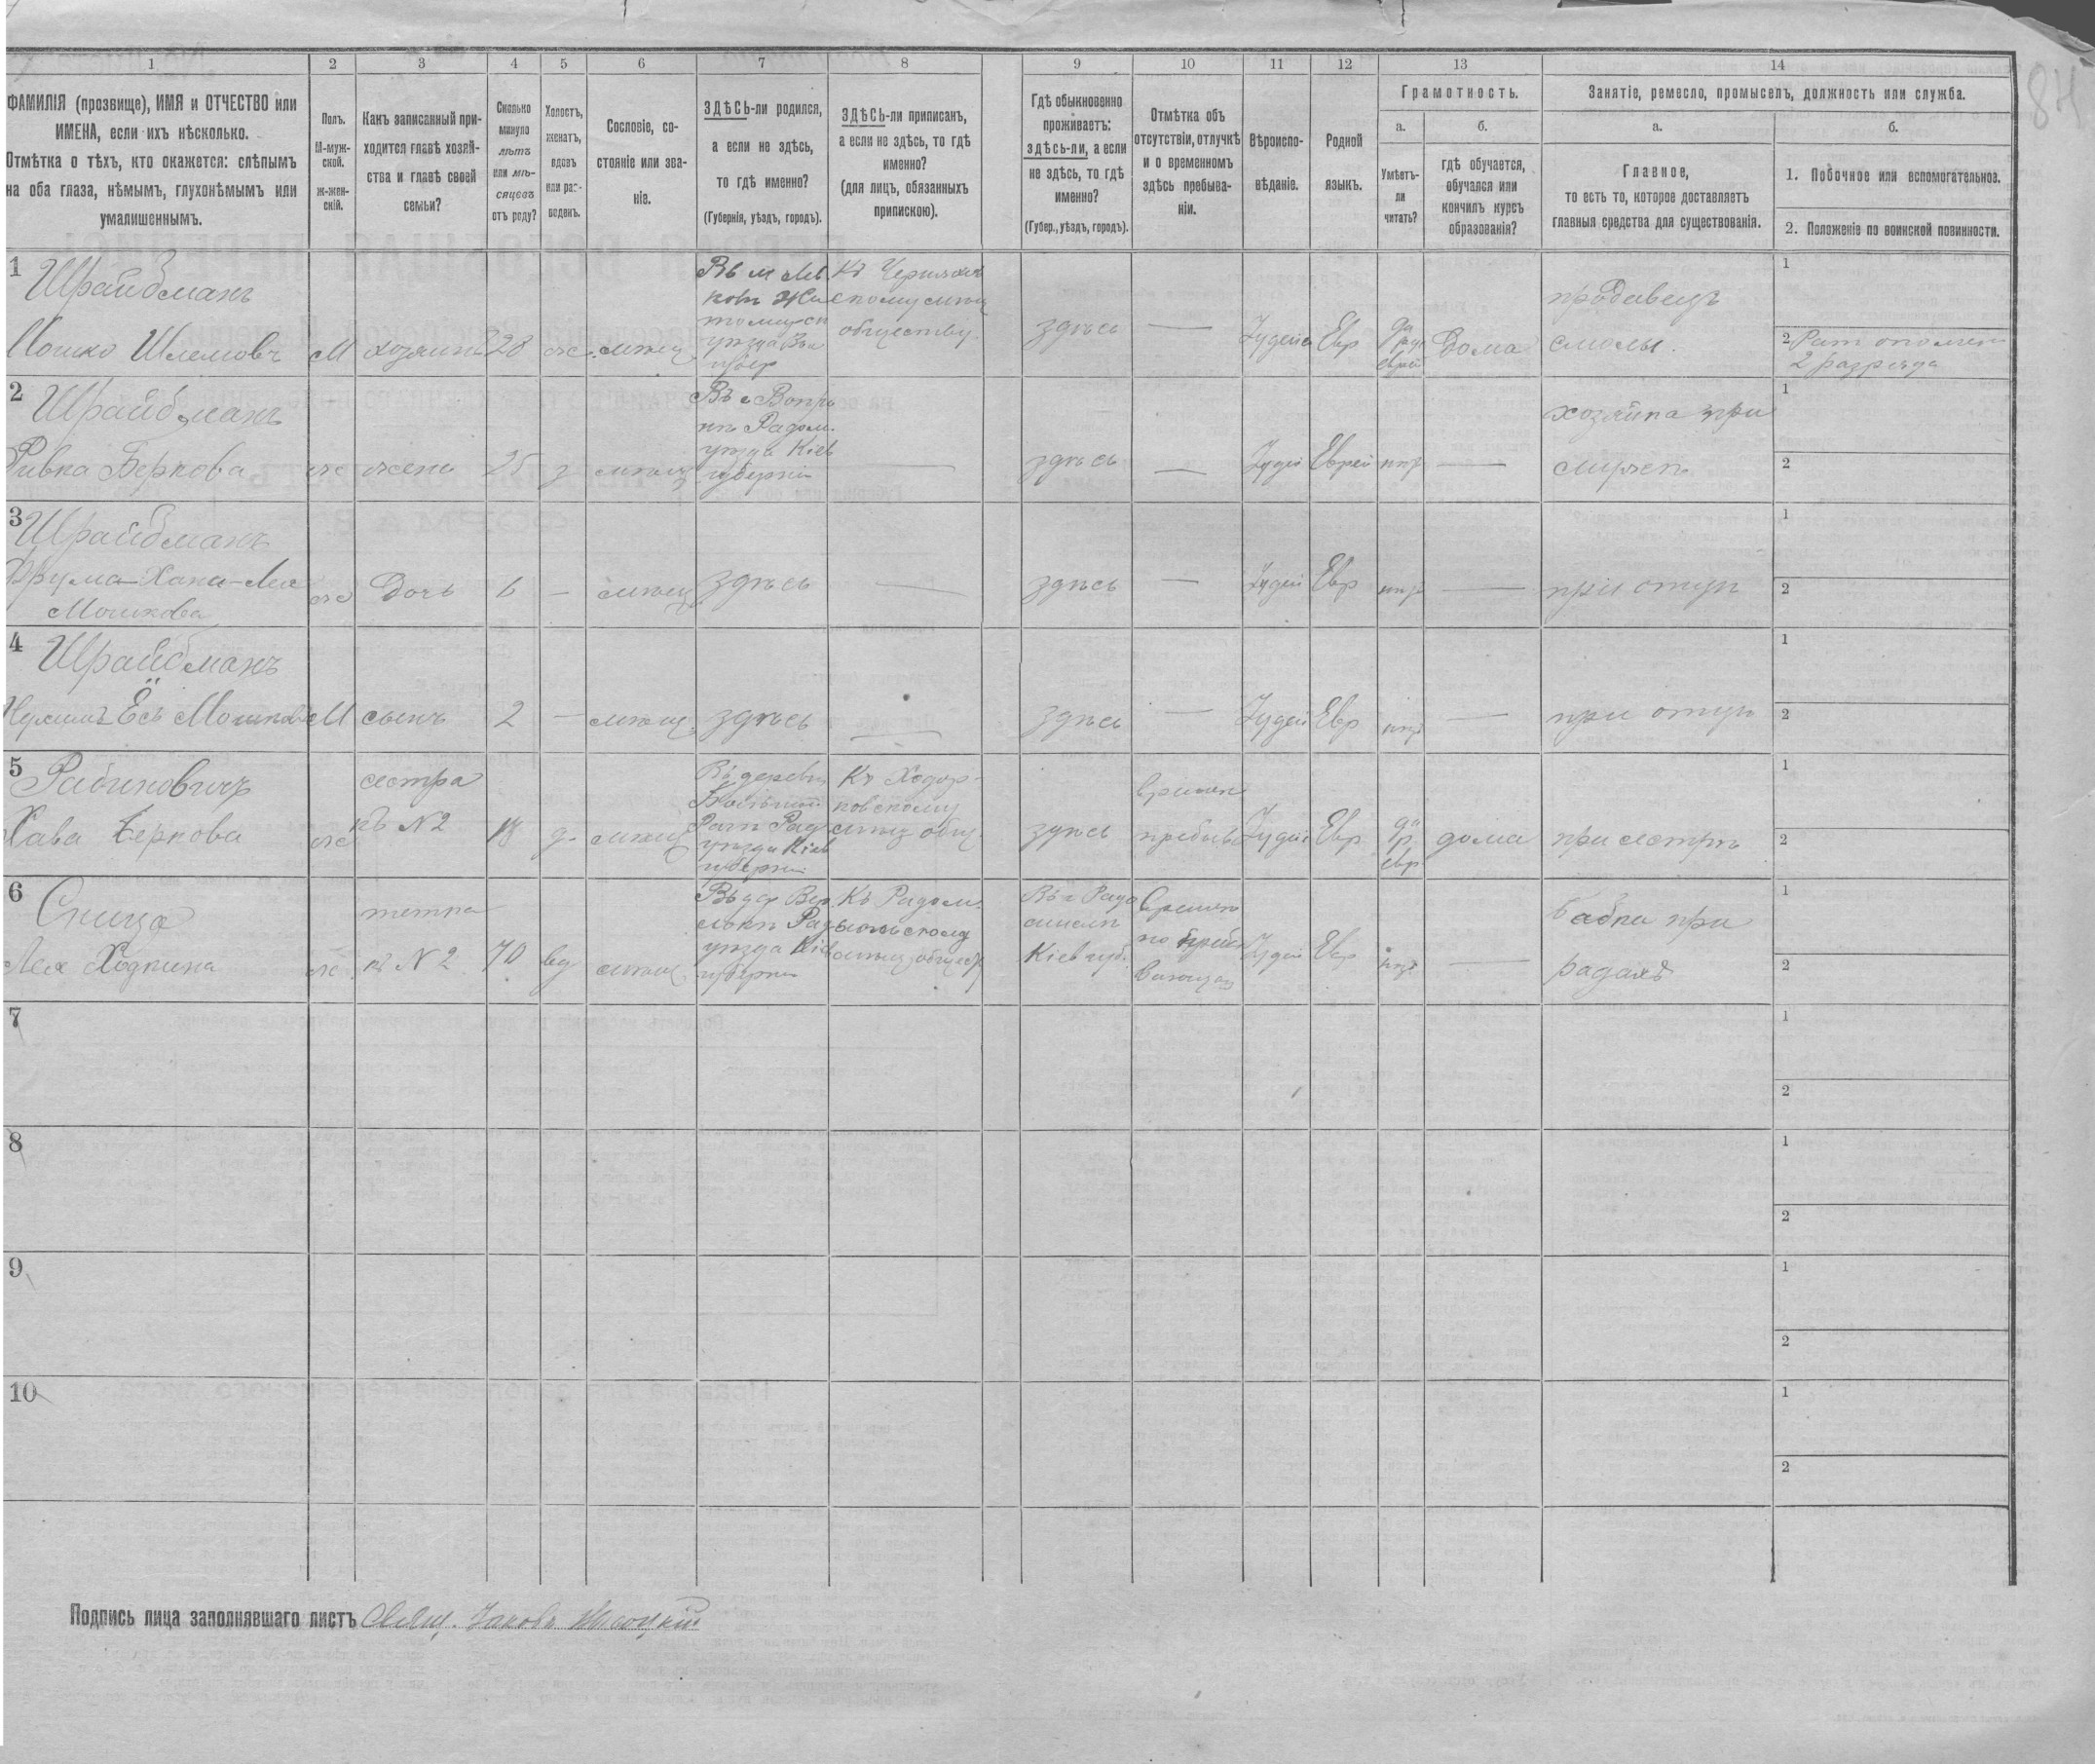 1 2 3 4 5 6 7 8 9 10 11 12 13 14
ФАМИЛІЯ (прозвище), ИМЯ и ОТЧЕСТВО или
ИМЕНА, если ихъ нѣсколько.
Отмѣтка о тѣхъ, кто окажется: слѣпымъ
на оба глаза, нѣмымъ, глухонѣмымъ или
умалишеннымъ.
Полъ.
М-муж-
ской.
ж-жен-
скій.
Какъ записанный при-
ходится главѣ хозяй-
ства и главѣ своей
семьи?
Сколько
минуло
лѣтъ
или мѣ-
сяцевъ
отъ роду?
Холостъ,
женатъ,
вдовъ
или раз-
веденъ.
Сословіе, со-
стояніе или зва-
ніе.
ЗДѢСЬ-ли родился,
а если не здѣсь,
то гдѣ именно?
(Губернія, уѣздъ, городъ).
ЗДѢСЬ-ли приписанъ,
а если не здѣсь, то гдѣ
именно?
(для лицъ, обязанныхъ
припискою).
Гдѣ обыкновенно
проживаетъ:
здѣсь-ли, а если
не здѣсь, то гдѣ
именно?
(Губер., уѣздъ, городъ).
Отмѣтка объ
отсутствіи, отлучкѣ
и о временномъ
здѣсь пребыва-
ніи.
Вѣроиспо-
вѣданіе.
Родной
языкъ.
Грамотность.
а.
Умѣетъ-
ли
читать?
б.
гдѣ обучается,
обучался или
кончилъ курсъ
образованія?
Занятіе, ремесло, промыселъ, должность или служба.
а.
Главное,
то есть то, которое доставляетъ
главныя средства для существованія.
б.
1. Побочное или вспомогательное.
2. Положеніе по воинской повинности.
84
1 Шрайбманъ
Мошко Шлемовъ М хозяинъ 28 ж. мѣщ
обществу
здѣсь — Іудейс Евр да дома
продавецъ
смолы.
1
2 Рат ополчен
2 разряда
2 Шрайбманъ
Ривка Беркова ж жена 25 з мѣщ
Радом.
уѣзда Кіев
губерніи
— здѣсь — Іудей Еврей нѣт —
хозяйка при
1
2
3 Шрайбманъ
Фрума-Хана-Лея
Мошкова
ж дочь 6 — мѣщ здѣсь — здѣсь — Іудей Евр нѣт — при отцѣ
1
2
4 Шрайбманъ
Мошковъ М сынъ 2 — мѣщ здѣсь — здѣсь — Іудей Евр нѣт — при отцѣ
1
2
5 Рабиновичъ
Хава Беркова ж
сестра
къ №2
18 д. мѣщ
уѣзда Кіев
губерніи
Къ Ходор-
ковскому
мѣщ общ.
здѣсь
времен
пребыв
Іудей Евр да
евр
дома при сестрѣ
1
2
6
Лея ж
тетка
къ №2
70 вд мѣщ
уѣзда Кіев
губерніи
Къ Радом.
мѣщ общест
Кіев губ.
времен
Іудей Евр нѣт —
бабка при
родахъ
1
2
7
1
2
8
1
2
9
1
2
10
1
2
Подпись лица заполнявшаго листъ Яковъ